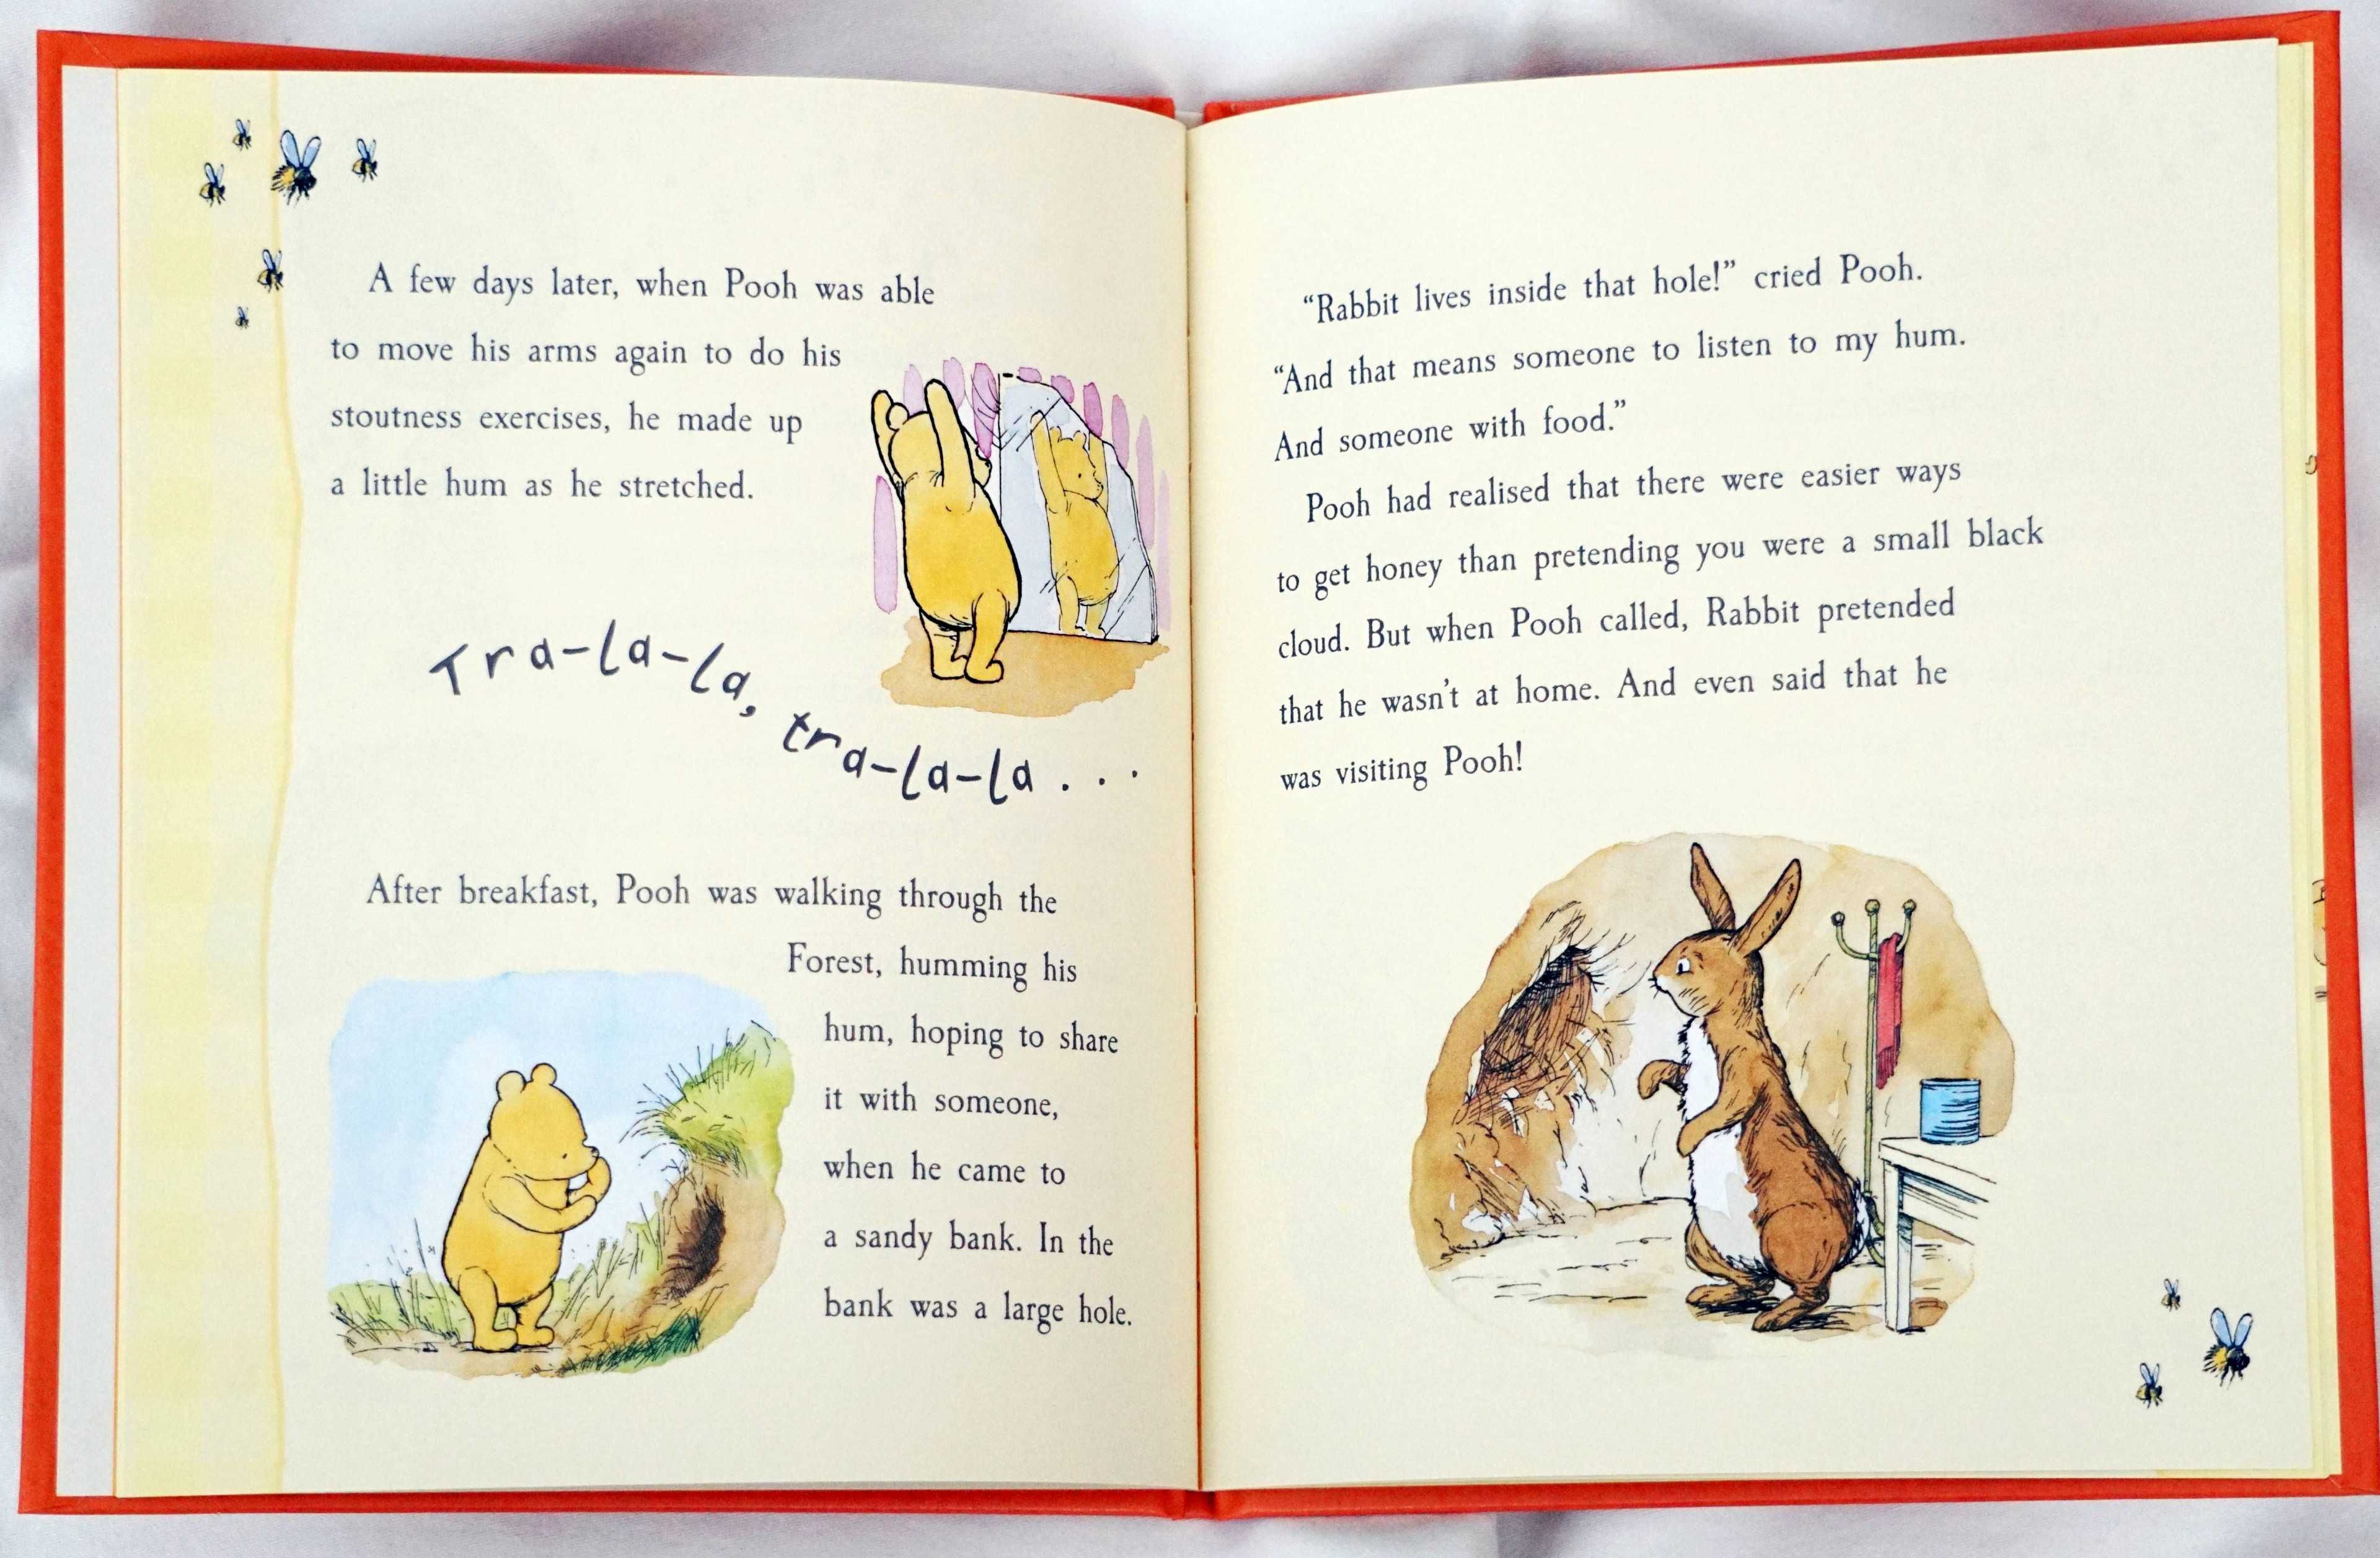 A few days later, when Pooh was able
to move his arms again to do his
stoutness exercises, he made up
a little hum as he stretched.
Tra-la-la, tra-la-la . . .
After breakfast, Pooh was walking through the
Forest, humming his
hum, hoping to share
it with someone,
when he came to
a sandy bank. In the
bank was a large hole.
“Rabbit lives inside that hole!” cried Pooh.
“And that means someone to listen to my hum.
And someone with food.”
Pooh had realised that there were easier ways
to get honey than pretending you were a small black
cloud. But when Pooh called, Rabbit pretended
that he wasn't at home. And even said that he
was visiting Pooh!